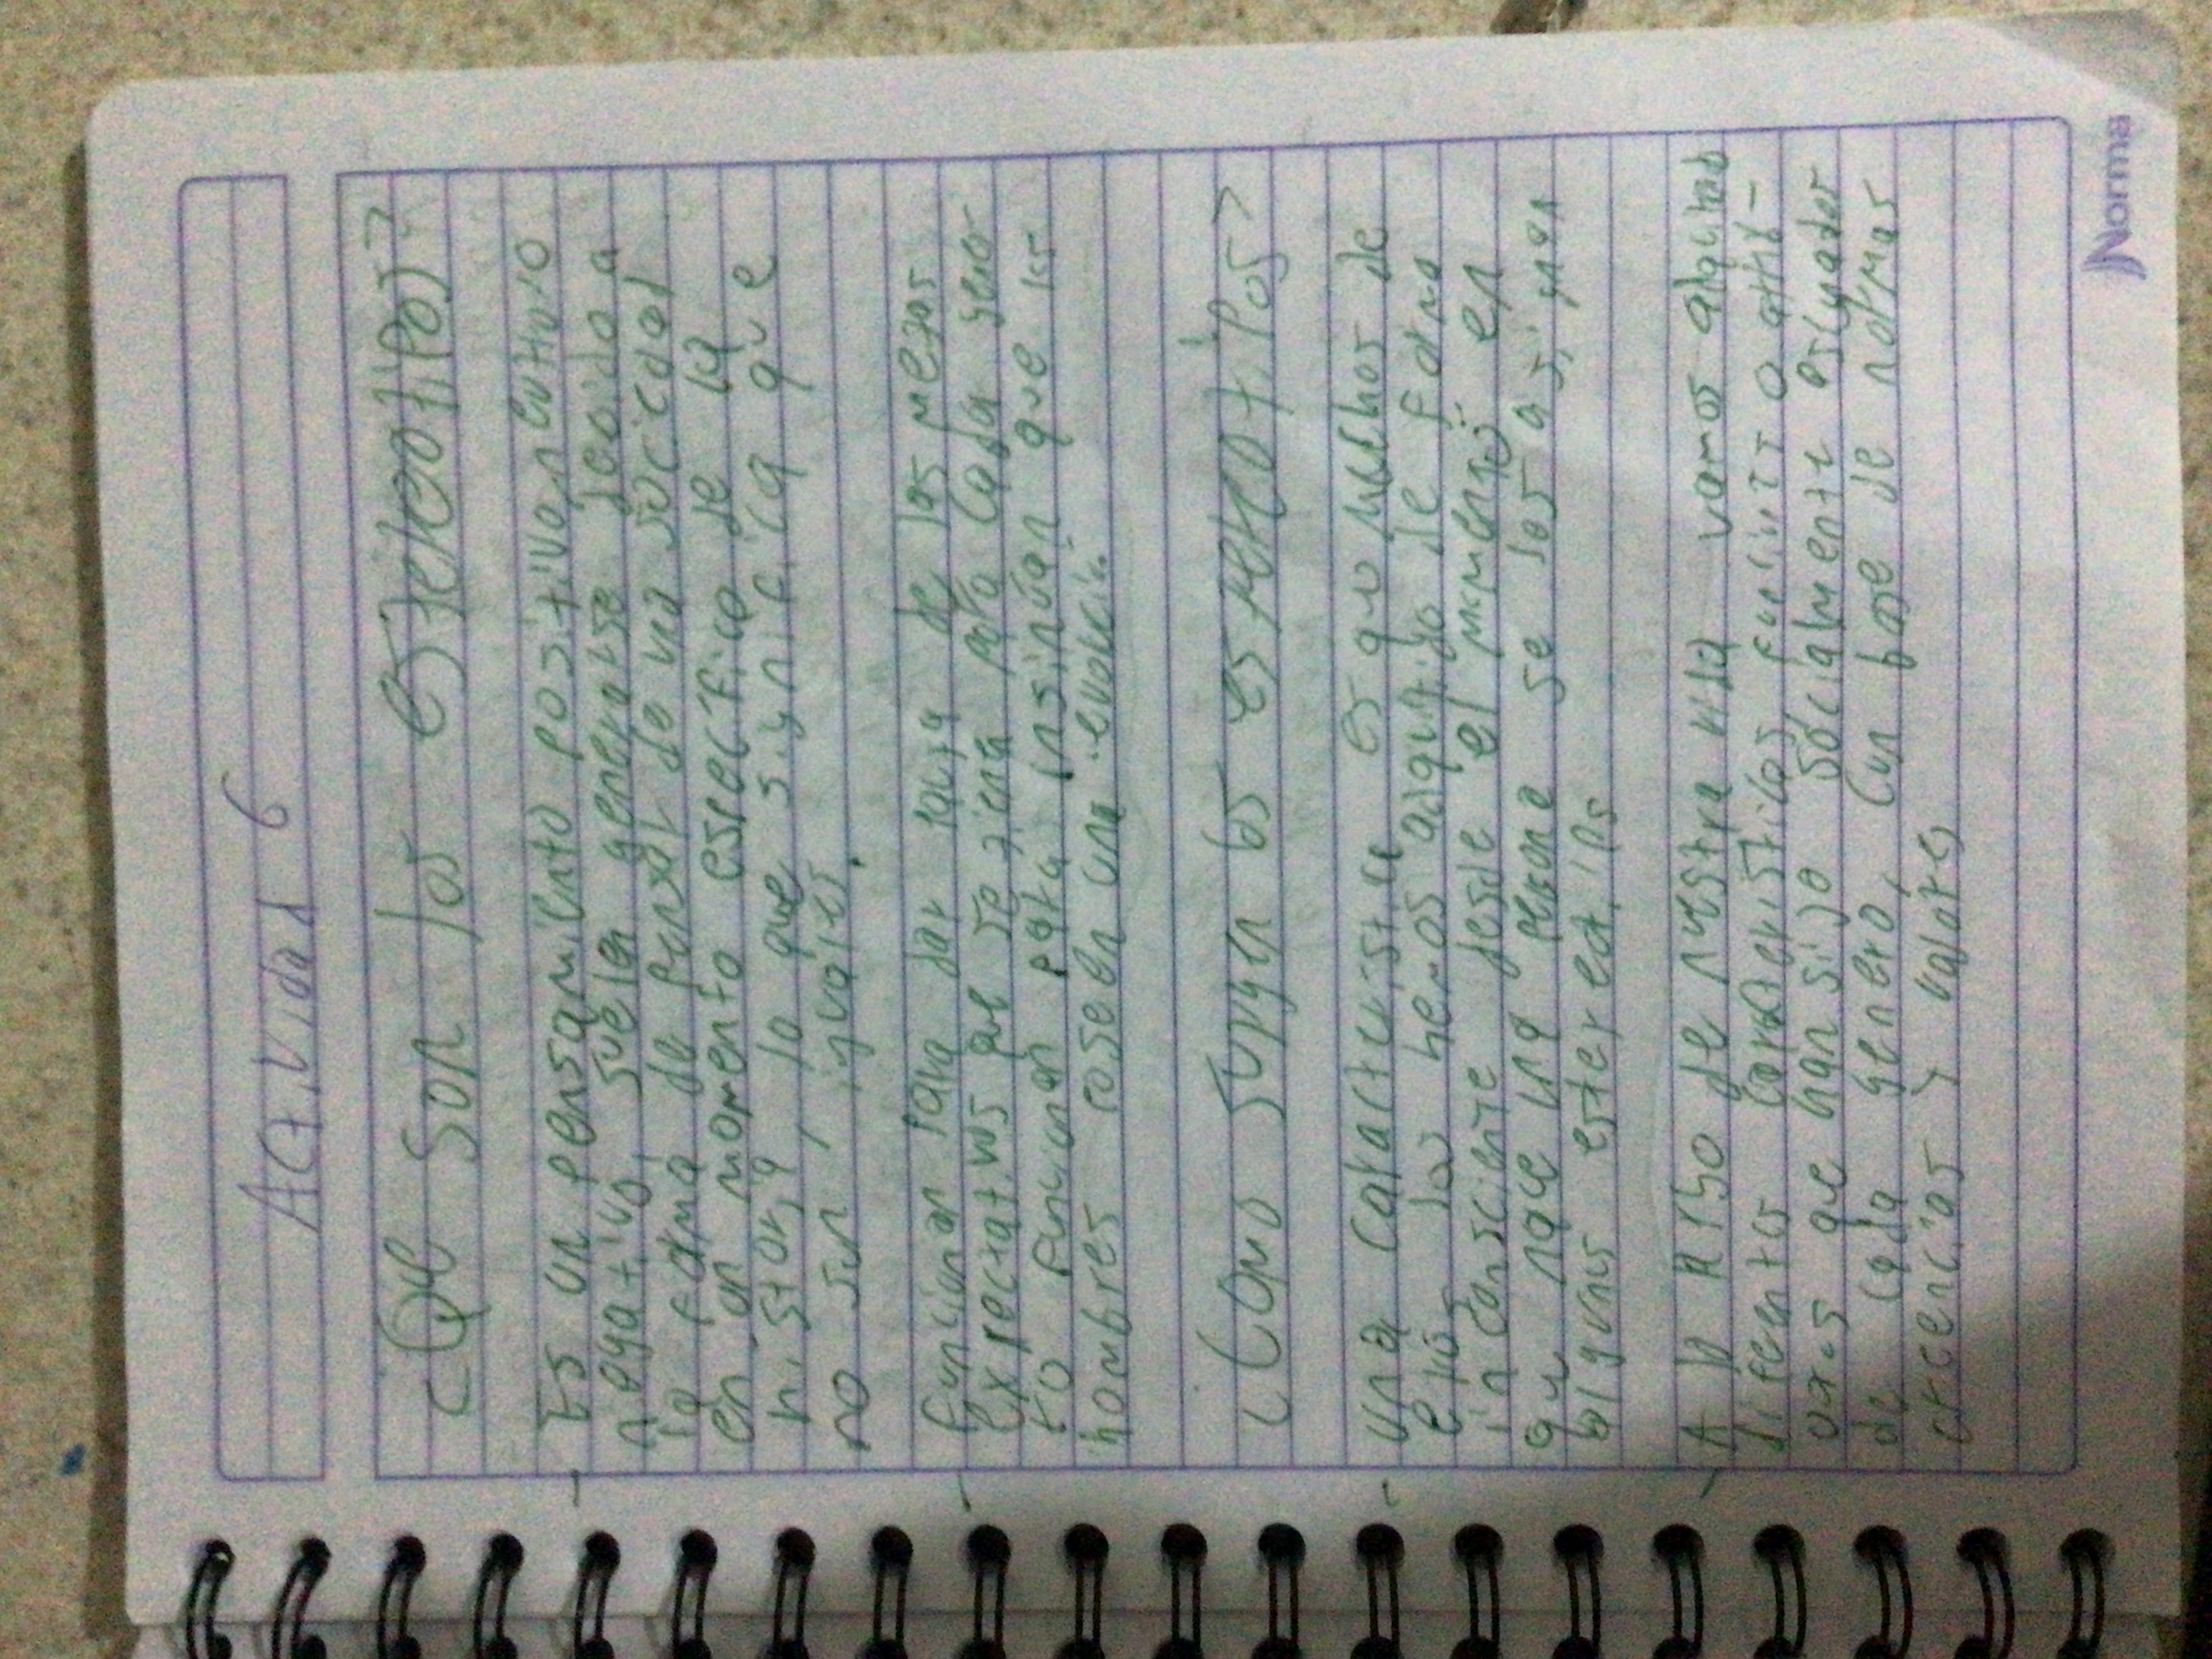 Actividad 6
¿Que son los estereotipos?
Es un pensamiento positivo, neutro o
negativo, suelen generarse debido a
la forma de pensar de una sociedad
en un momento especifico de la
historia, lo que significa que
no son iguales.
funcionan para dar
expectativas que se tiene para cada gene-
ro funcionan para insinuan que los
hombres poseen una
Como surgen los estereotipos?
una caracteristica es que muchos de
ellos los hemos adquirido de forma
inconsciente desde el momento en
que nace una persona se les asignan
algunos estereotipos
A lo largo de nuestra vida vamos adquiriendo
diferentes caracteristicas, funciones o atrib-
utos que han sido socialmente
de cada genero, con base de normas
creencias y valores
Norma